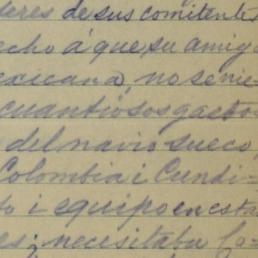 deres de sus comitentes
echo á que su amigo
exicana, no se nie-
cuantiosos gasto
del navio sueco,
Colombia i Cundi-
to i equipo en esta
es; necesitaba Co-